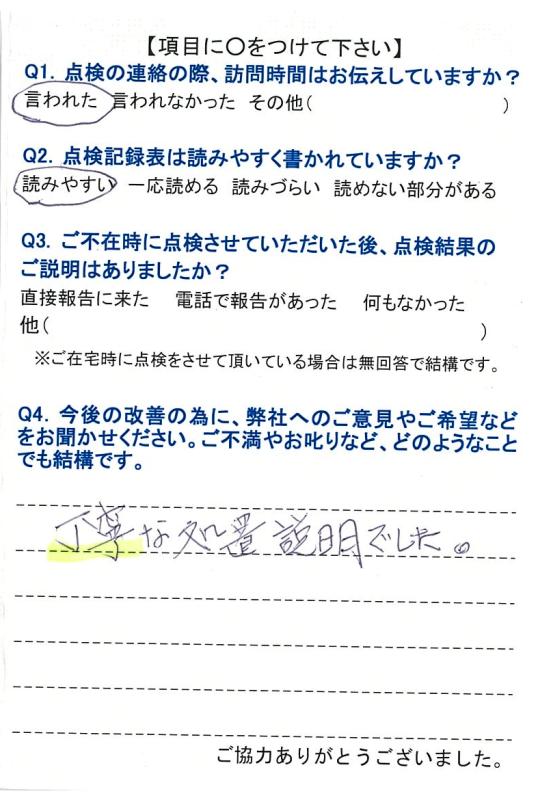 【項目に〇をつけて下さい】
Q1. 点検の連絡の際、訪問時間はお伝えしていますか？
言われた 言われなかった その他( )
Q2. 点検記録表は読みやすく書かれていますか？
読みやすい 一応読める 読みづらい 読めない部分がある
Q3. ご不在時に点検させていただいた後、点検結果の
ご説明はありましたか？
直接報告に来た 電話で報告があった 何もなかった
他( )
※ご在宅時に点検をさせて頂いている場合は無回答で結構です。
Q4. 今後の改善の為に、弊社へのご意見やご希望など
をお聞かせください。ご不満やお叱りなど、どのようなこと
でも結構です。
丁寧な処置説明でした。
ご協力ありがとうございました。